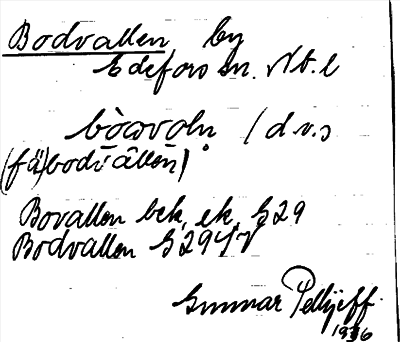 Bodvallen by
Edefors sn. Nb. l
bòωvoln (d v.s
(fä)bodvallen)
Bovallen bek. ek. S 29
Bodvallen S 29
Gunnar Pellijeff
1936